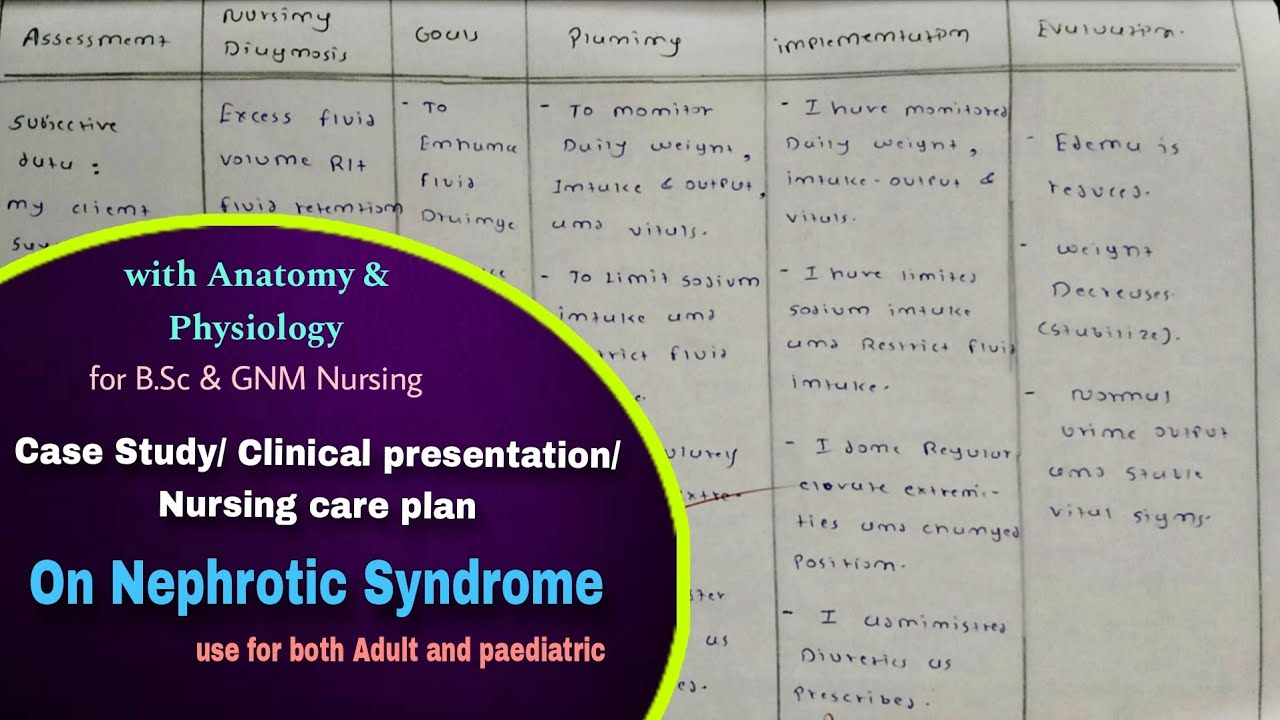 Assessment
Nursing
Diagnosis
Goals
Planning
implementation
Evaluation.
Subjective
data:
my client
Excess fluid
volume R/t
fluid retention
- To
Enhance
fluid
Drainage
- To monitor
Daily weight,
Intake & output,
and vitals.
- To Limit sodium
intake and
fluid
- I have monitored
Daily weight,
intake-output &
vitals.
- I have limited
sodium intake
and Restrict fluid
intake.
- I done Regular
elevate extremi-
ties and changed
position.
- I administred
Diuretics as
prescribed.
- Edema is
reduced.
- weight
Decreases
(stabilize).
- Normal
urine output
and stable
vital signs.
with Anatomy &
Physiology
for B.Sc & GNM Nursing
Case Study/ Clinical presentation/
Nursing care plan
On Nephrotic Syndrome
use for both Adult and paediatric